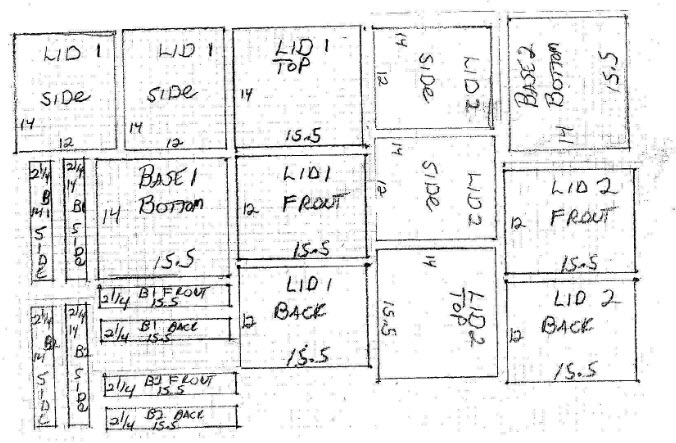 LID 1
SIDE
14
12
LID 1
SIDE
12
LID 1
TOP
14
15.5
14
12
SIDE
LID 2
BASE 2
BOTTOM
14
15.5
2 1/4
B
14 1
SIDE
2 1/4
14
B1
SIDE
BASE 1
BOTTOM
14
15.5
LID 1
FRONT
12
15.5
14
12
SIDE
LID 2
LID 2
FRONT
12
15.5
2 1/4 B1 FRONT
15.5
2 1/4 B1 BACK
15.5
LID 1
BACK
12
15.5
14
15.5
LID 2
TOP
LID 2
BACK
12
15.5
2 1/4
B2
14
SIDE
2 1/4
14
B2
SIDE
2 1/4 B2 FRONT
15.5
2 1/4 B2 BACK
15.5